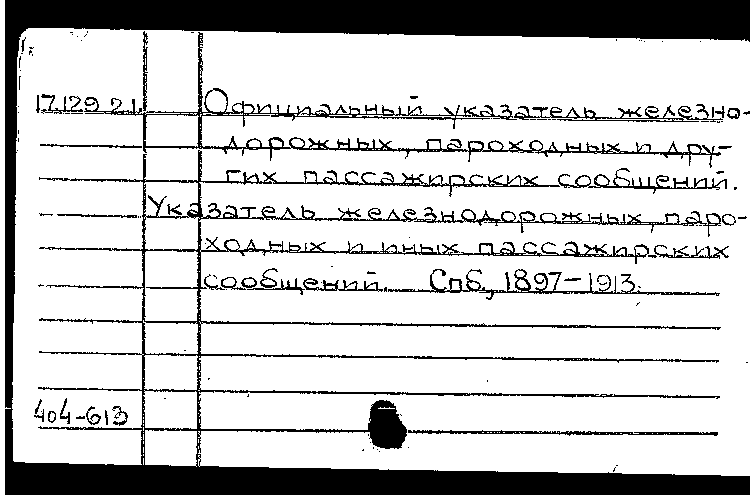 17.129 2 1. Официальный указатель железно-
дорожных, пароходных и дру-
гих пассажирских сообщений.
Указатель железнодорожных, паро-
ходных и иных пассажирских
сообщений. Спб., 1897-1913.
404-613